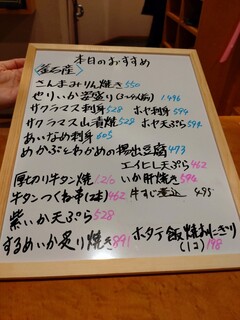 本日のおすすめ
<釜石産>
さんまみりん焼き 550
せりいか姿盛り(3〜4人前) 1,496
サクラマス刺身 528 ホヤ刺身 594
サクラマス山着焼 528 ホヤ天ぷら 594
あいなめ刺身 605
めかぶとわかめの揚出豆腐 473
エイヒレ天ぷら 462
厚切り牛タン焼 1210 いか肝焼き 594
牛タンつくね串(2本) 462 牛すじ煮込 495
紫いか天ぷら 528
するめいか炙り焼き 891 ホタテ飯焼おにぎり
(1コ) 198